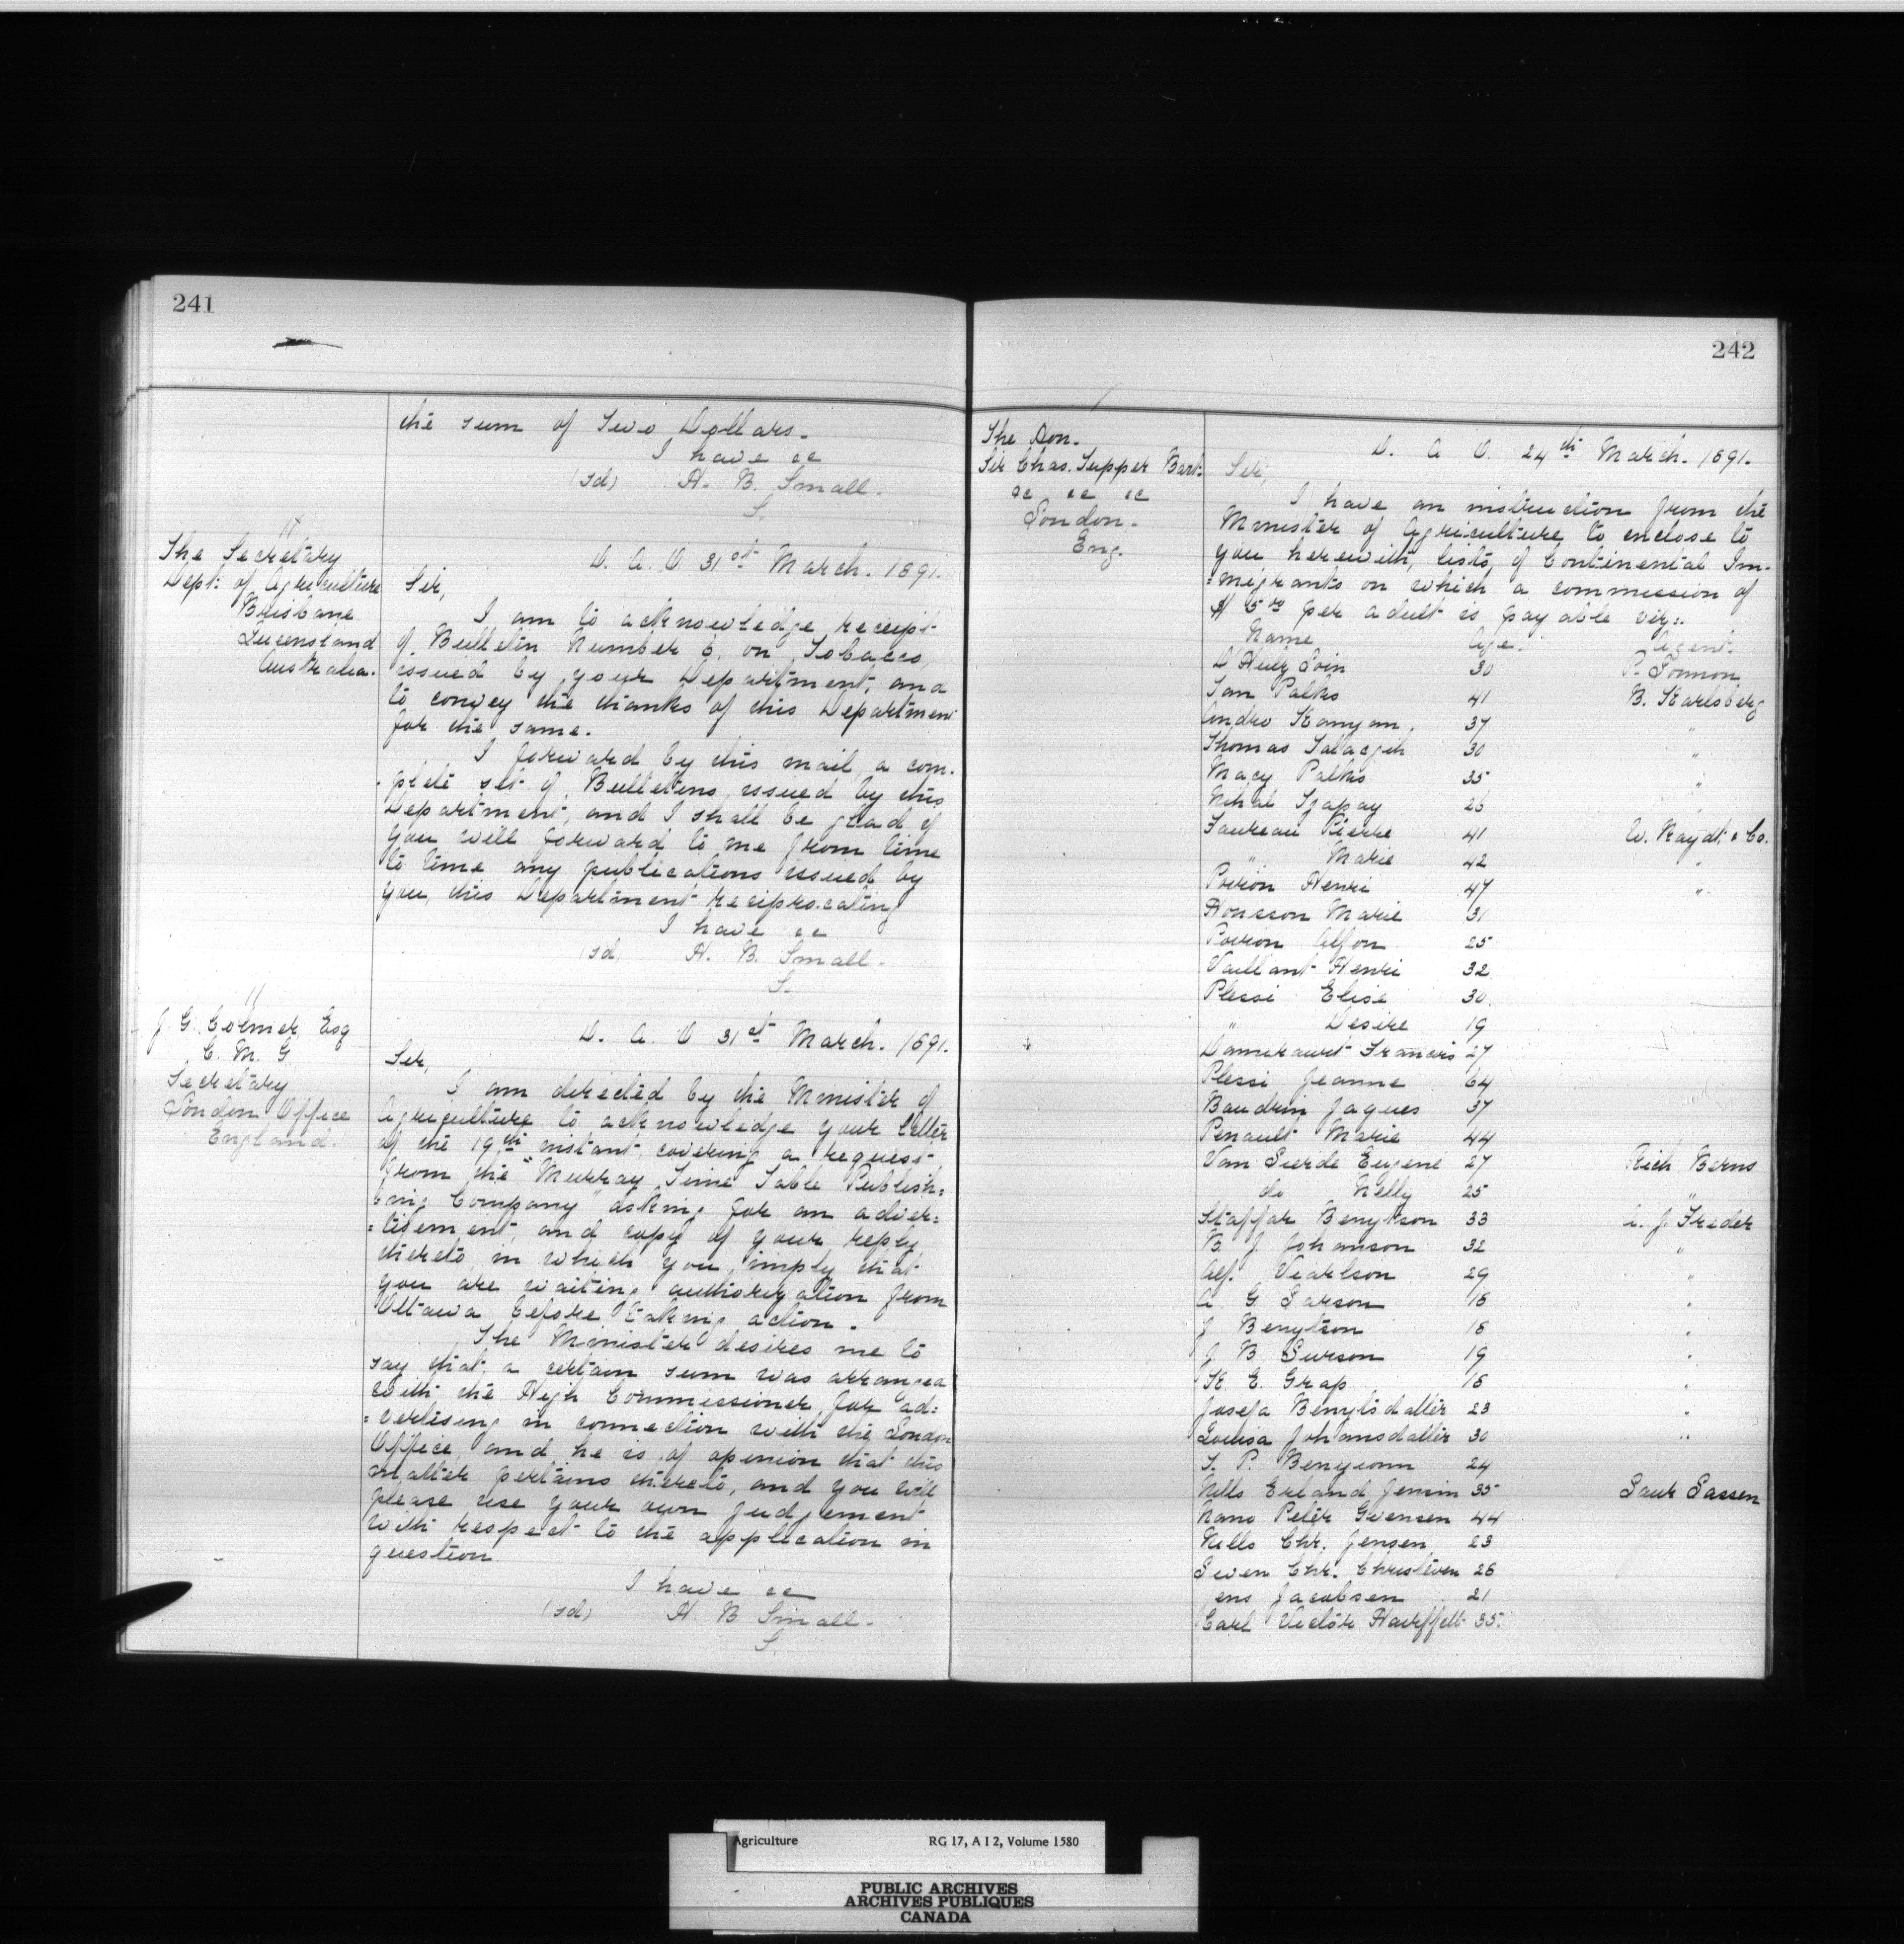 241
the sum of Two Dollars.
I have &c
(sd) H. B. Small.
S.
The Secretary
Dept: of Agriculture
Brisbane
Queensland
Australia.
D. A. O. 31st March. 1891.
Sir,
I am to acknowledge receipt
of Bulletin Number 6, on Tobacco,
issued by your Department, and
to convey the thanks of this Department
for the same.
I forward by this mail, a com-
plete set of Bulletins, issued by this
Department, and I shall be glad if
you will forward to me from time
to time any publications issued by
you, this Department reciprocating
I have &c
(sd) H. B. Small.
S.
J. G. Colmer, Esq
C. M. G
Secretary
London Office
England.
D. A. O 31st March. 1891.
Sir,
I am directed by the Minister of
Agriculture to acknowledge your letter
of the 19th instant, covering a request
from the "Murray Time Table Publish=
=ing Company" asking for an adver=
=tisement, and copy of your reply
thereto, in which you imply that
you are waiting authorization from
Ottawa before taking action.
The Minister desires me to
say that a certain sum was arranged
with the High Commissioner, for ad=
=vertising in connection with the London
Office, and he is of opinion that this
matter pertains thereto, and you will
please use your own judgement
with respect to the application in
question.
I have &c
(sd) H. B Small.
S.
242
The Hon.
Sir Chas. Tupper Bart:
&c &c &c
London.
Eng.
D. A. O. 24th March. 1891.
Sir,
I have an instruction from the
Minister of Agriculture, to enclose to
you herewith, lists, of Continental Im-
=migrants on which a commission of
per adult is payable viz:.
Name Age. Agent.
30
41 B. Karlsberg
Andro Kanyan. 37 "
Thomas 30 "
Macy Palko 35 "
26 "
Taureau Pierre 41 W. Raydt & Co.
" Marie 42 "
Poirion Henri 47 "
Housson Marie 31
Poirion 25
Vaillant Henri 32
Plessi Elise 30.
" Desire 19
Francois 27
Plessi Jeanne 64
Baudrin Jaques 37
Penault Marie 44
Van Eugene 27 Rich Berns
do Nelly 25 "
Staffar Bengtson 33 A. J. Freder
B. J Johanson 32 "
29 "
A G Larson 18 "
J Bengtson 18 "
J. B 19 "
K. E. Grap 18 "
Josefa Bengtsdatter 23 "
Lovisa Johansdatter 30 "
24
Nills Erland Jensen 35 Saur Sassen
Hans Peter 44
Nills Chr. Jensen 23
Chr. 26
ens Jacobsen 21
Carl Victor 35.
Agriculture RG 17, A I 2, Volume 1580
PUBLIC ARCHIVES
ARCHIVES PUBLIQUES
CANADA